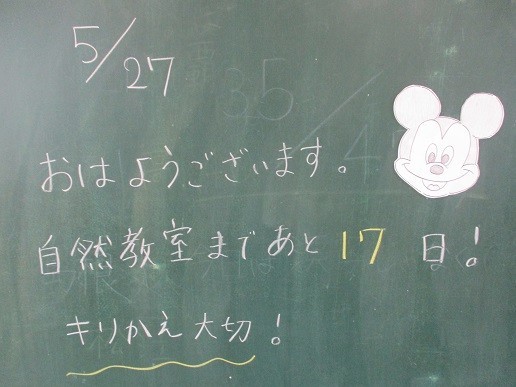 5/27
おはようございます。
自然教室まであと17日!
キリかえ大切!